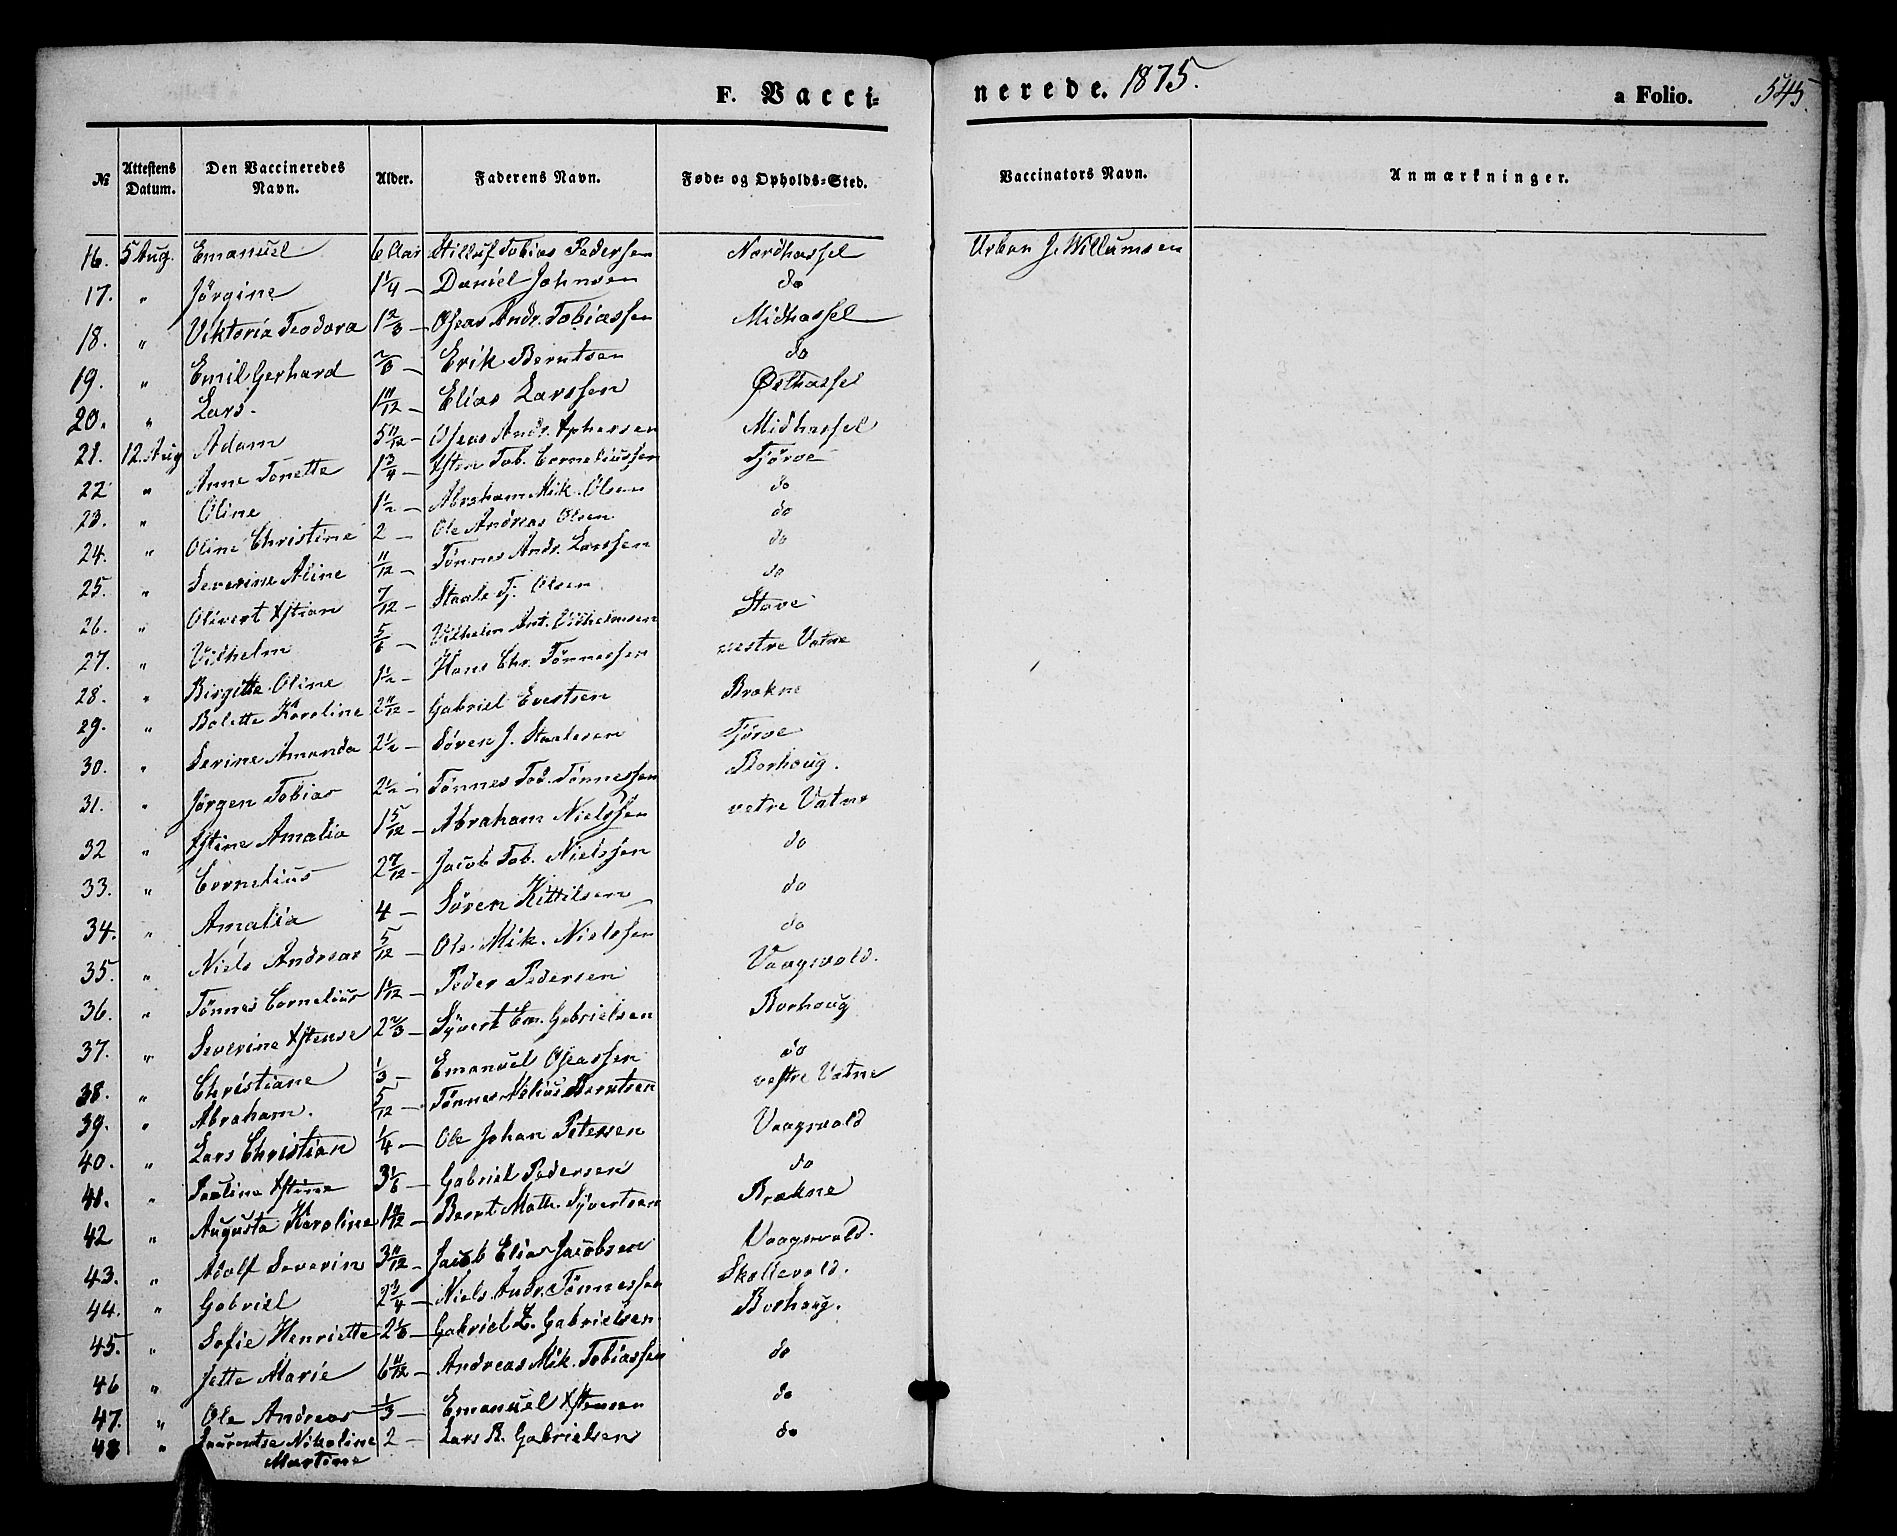 F. Vaccinerede. 1875. a Folio. 545.
№ Attestens Datum. Den Vaccineredes Navn. Alder. Faderens Navn. Føde- og Opholds-Sted. Vaccinators Navn. Anmærkninger.
16. 5 Aug. Emanuel 6 Aar Tobias Pedersen Nordhassel Urban J. Willumsen
17. " Jørgine 1 1/4 — Daniel Johnsen do
18. " Viktoria Teodora 1 2/3 — Oseas Andr. Tobiassen Midhassel
19. " Emil Gerhard 2/3 — Erik Berntsen do
20. " Lars. 1 11/12 — Elias Larssen Østhassel
21. 12. Aug Adam 5 11/12 — Oseas Andr. Xphersen Midhassel
22 " Anne Tonette 1 3/4 — Xsten Tob. Corneliussen Tjørve
23. " Oline 1 1/2 — Abraham Mik. Olsen do
24. " Oline Christine 2 — Ole Andreas Olsen do
25. " Severine Aline 11/12 — Tønnes Andr. Larssen do
26. " Olivert Xstian 7/12 — Staale Tj. Olsen do
27. " Vilhelm 5/6 — Vilhelm Ant. Vilhelmsen Stave
28. " Birgitte Oline 1 1/2 — Hans Chr. Tønnessen vestre Vatne
29. " Bolette Karoline 2 11/12 — Gabriel Evertsen Brækne
30. " Serine Amanda 2 1/2 — Søren J. Staalesen Tjørve
31. " Jørgen Tobias 2 1/2 — Tønnes Tod. Tønnessen Borhoug.
32 " Xstine Amalia 1 5/12 — Abraham Nielssen vetre Vatne
33. " Cornelius 2 7/12 — Jacob Tob. Nielssen do
34. " Amalia 4 — Søren Kittilsen do
35. " Niels Andreas 5/12 — Ole Mik. Nielssen do
36. " Tønnes Cornelius 1 1/12 — Peder Pedersen Vaagsvold.
37. " Severine Xstense 2 2/3 — Syvert Em. Gabrielsen Borhoug
38. " Christiane 1/3 — Emanuel Oseassen do
39. " Abraham. 5/12 — Tønnes Berntsen vestre Vatne
40. " Lars Christian 1/4 — Ole Johan Petersen Vaagsvold
41. " Pauline Xstine 3 1/6 — Gabriel Pedersen do
42 " Augusta Karoline 1 11/12 — Bernt Math. Syvertsen Brækne
43. " Adolf Severin 3 11/12 — Jacob Elias Jacobsen Vaagsvold.
44. " Gabriel 2 3/4 — Niels Andr. Tønnessen Skollevold.
45. " Sofie Henriette 2 1/3 — Gabriel Z. Gabrielsen Borhoug.
46 " Jette Marie 6 11/12 — Andreas Mik. Tobiassen do
47. " Ole Andreas 1/3 — Emanuel Xstensen do
48 " Laurentse Nikoline 2 — Lars R. Gabrielsen do
Martine